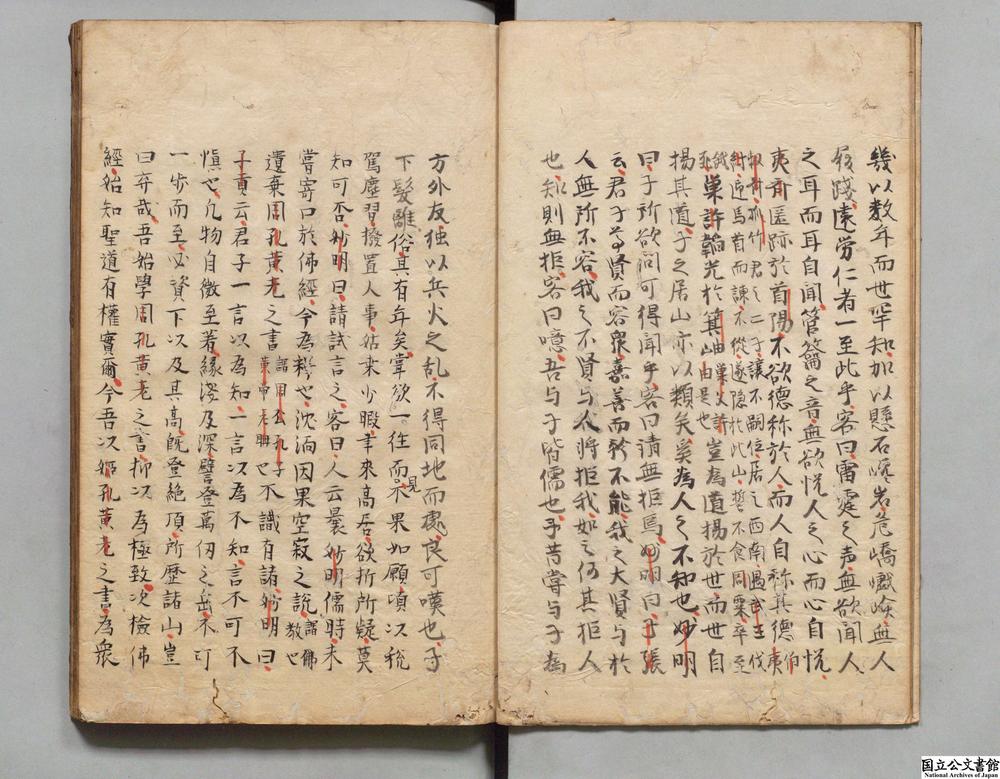 幾以数年而世罕知加以懸石巉岩危嶠巇嶮無人
履踐遠労仁者一至此乎客曰雷霆之声無欲聞人
之耳而耳自聞管籥之音無欲悦人之心而心自悦
夷斉匿跡於首陽不欲徳称於人而人自称其徳伯夷
叔斉孤竹君之二子譲不嗣位居之西南遇武王伐
紂迎馬首而諌不従遂隠於此山誓不食周粟卒至
餓死
巣許韜光於箕岫巣父許由是也豈為道揚於世而世自
揚其道子之居山亦以類矣奚為人之不知也妙明
曰子所欲問可得聞乎客曰請無拒焉妙明曰子張
云君子尊賢而容衆嘉善而矜不能我之大賢与於
人無所不容我之不賢与人将拒我如之何其拒人
也知則無拒容曰噫吾与子皆儒也予昔嘗与子為
方外友独以兵火之乱不得同地而處良可嘆也子
下髮離俗其有年矣嘗欲一往而見不果如願頃以税
駕塵習撥置人事姑来少暇聿来高居欲折所疑莫
知可否妙明曰請試言之客曰人云曩妙明儒時未
嘗寄口於佛経今為釋也沈湎因果空寂之説謂佛教也
遺棄周孔黄老之書謂周公孔子黄帝老聃也不識有諸妙明曰
子貢云君子一言以為知一言以為不知言不可不
慎也凡物自微至著縁淺及深譬登萬仭之岳不可
一歩而至必資下以及其高既登絶頂所歴諸山豈
曰弃哉吾始學周孔黄老之言抑以為極致次檢佛
經始知聖道有權實爾今吾以姫孔黄老之書為衆
国立公文書館
National Archives of Japan